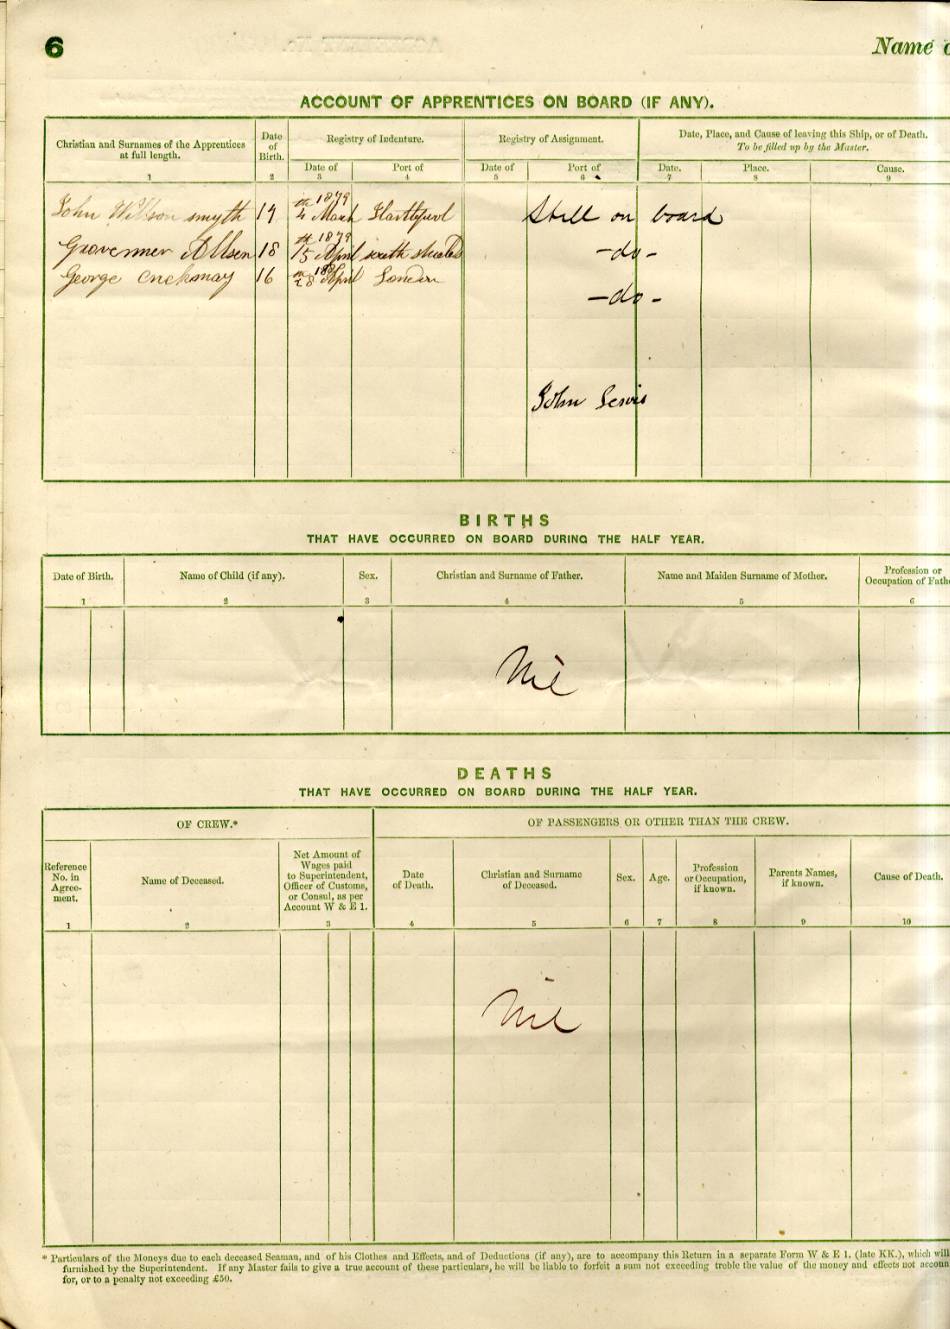 6
Name
ACCOUNT OF APPRENTICES ON BOARD (IF ANY).
Christian and Surnames of the Apprentices at full length.
Date of Birth.
Registry of Indenture.
Registry of Assignment.
Date, Place, and Cause of leaving this Ship, or of Death.
To be filled up by the Master.
Date of
Port of
Date of
Port of
Date.
Place.
Cause.
1 2 3 4 5 6 7 8 9
John Willson smyth 19 4th March 1879 Hartlepool Still on board
18 15th April 1879 south shields -do-
George 16 28th April London -do-
John Lewis
BIRTHS
THAT HAVE OCCURRED ON BOARD DURING THE HALF YEAR.
Date of Birth.
Name of Child (if any).
Sex.
Christian and Surname of Father.
Name and Maiden Surname of Mother.
Profession or
Occupation of
1 2 3 4 5 6
Nil
DEATHS
THAT HAVE OCCURRED ON BOARD DURING THE HALF YEAR.
OF CREW.*
OF PASSENGERS OR OTHER THAN THE CREW.
Reference No. in Agree-ment.
Name of Deceased.
Net Amount of Wages paid to Superintendent, Officer of Customs, or Consul, as per Account W & E 1.
Date of Death.
Christian and Surname of Deceased.
Sex.
Age.
Profession or Occupation, if known.
Parents Names, if known.
Cause of Death.
1 2 3 4 5 6 7 8 9 10
Nil
* Particulars of the Moneys due to each deceased Seaman, and of his Clothes and Effects, and of Deductions (if any), are to accompany this Return in a separate Form W & E 1. (late KK.), which will
furnished by the Superintendent. If any Master fails to give a true account of these particulars, he will be liable to forfeit a sum not exceeding treble the value of the money and effects not
for, or to a penalty not exceeding £50.